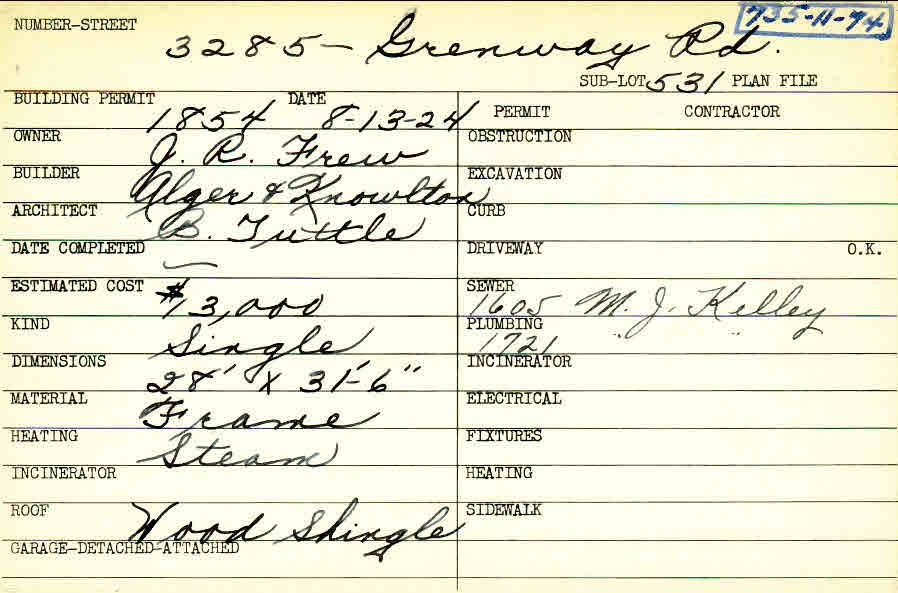 735-11-74
NUMBER-STREET
3285- Grenway Rd.
SUB-LOT 531 PLAN FILE
BUILDING PERMIT 1854 DATE 8-13-24
PERMIT CONTRACTOR
OWNER J. R. Frew
OBSTRUCTION
BUILDER Alger & Knowlton
EXCAVATION
ARCHITECT B. Tuttle
CURB
DATE COMPLETED —
DRIVEWAY O.K.
ESTIMATED COST $13,000
SEWER 1605 M. J. Kelley
KIND Single
PLUMBING 1721 " " "
DIMENSIONS 28' X 31'-6"
INCINERATOR
MATERIAL Frame
ELECTRICAL
HEATING Steam
FIXTURES
INCINERATOR
HEATING
ROOF Wood Shingle
SIDEWALK
GARAGE-DETACHED-ATTACHED